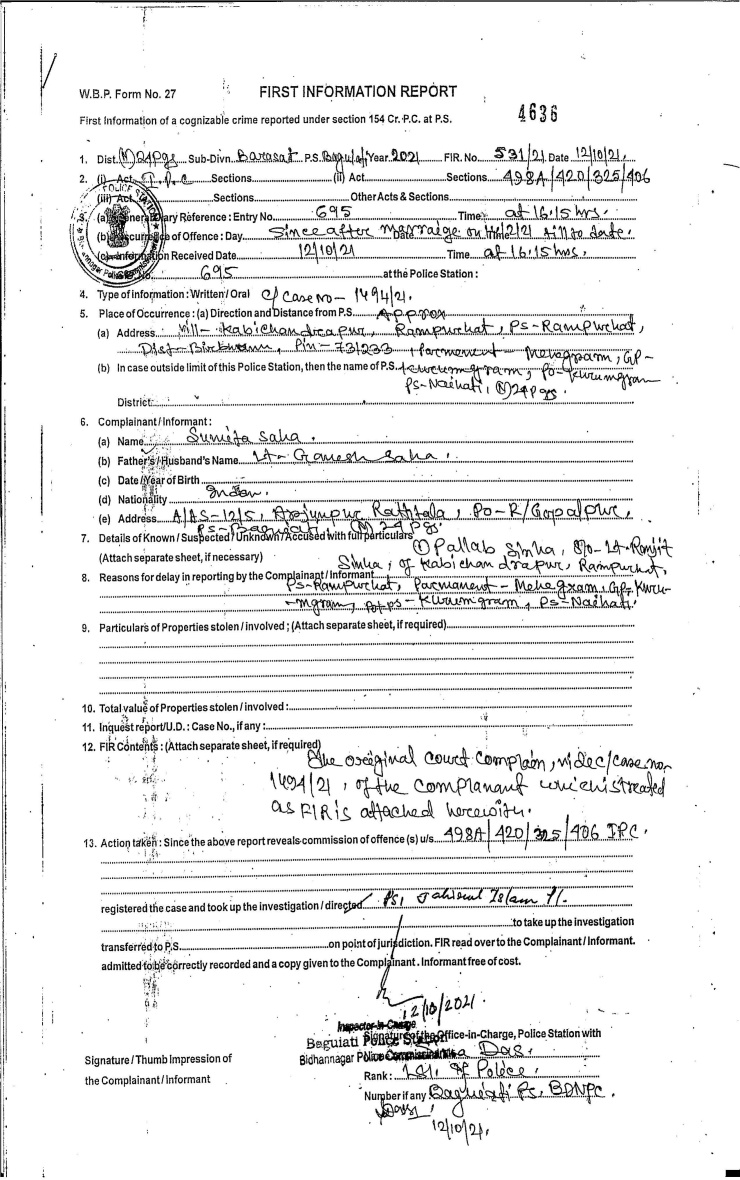 W.B.P. Form No. 27
FIRST INFORMATION REPORT
4636
First Information of a cognizable crime reported under section 154 Cr. P.C. at P.S.
1. Dist. (N) 24 Pgs Sub-Divn. Barasat P.S. Baguiati Year 2021 FIR. No. 531/21 Date 12/10/21.
2. (i) Act I.P.C Sections (ii) Act Sections 498A/420/325/406
(iii) Act Sections Other Acts & Sections
3. (a) General Diary Reference : Entry No. 695 Time at 16.15 hrs.
(b) Occurrence of Offence : Day Since after marraige on 2/21 till to date.
(c) Information Received Date 12/10/21 Time at 16.15 hrs.
No. 695 at the Police Station :
4. Type of information : Written / Oral C/ Case no - 1494/21.
5. Place of Occurrence : (a) Direction and Distance from P.S. Approx
(a) Address Vill - Kabichandrapur, Rampurhat, Ps - Rampurhat,
Dist - Birbhum, Pin - 731233, Parmenent - Mehegram, GP -
(b) In case outside limit of this Police Station, then the name of P.S. Kurumgram, Po - Kurumgram
Ps - Naihati, (N) 24 Pgs.
District
6. Complainant / Informant :
(a) Name Sumita Saha.
(b) Father's / Husband's Name Lt - Ganesh Saha.
(c) Date / Year of Birth
(d) Nationality Indian.
(e) Address A/AS-12/5, Arjunpur Rathtala, Po - R/Gopalpur,
Ps - Baguiati (N) 24 Pgs.
7. Details of Known / Suspected / Unknown / Accused with full particulars (1) Pallab Sinha, S/o - Lt - Ronjit
(Attach separate sheet, if necessary) Sinha, of Kabichandrapur, Rampurhat,
8. Reasons for delay in reporting by the Complainant / Informant Ps - Rampurhat, Parmanent - Mehegram, GP - Kuru-
-mgram, Po+ps - Kurumgram, Ps - Naihati.
9. Particulars of Properties stolen / involved ; (Attach separate sheet, if required)
10. Total value of Properties stolen / involved :
11. Inquest report/U.D. : Case No., if any :
12. FIR Contents : (Attach separate sheet, if required)
The original court complain, vide c/case no
1494/21, of the complanant which is treated
as FIR is attached herewith.
13. Action taken : Since the above report reveals commission of offence (s) u/s 498A/420/325/406 IPC.
registered the case and took up the investigation / directed Islam
to take up the investigation
transferred to P.S. on point of jurisdiction. FIR read over to the Complainant / Informant.
admitted to be correctly recorded and a copy given to the Complainant. Informant free of cost.
12/10/2021.
Inspector-in-Charge
Signature of the Office-in-Charge, Police Station with
Baguiati Police Station
Bidhannagar Police Commissionerate Das.
Signature / Thumb Impression of
the Complainant / Informant
Rank : of Police.
Number if any Baguiati Ps. BDNPC.
12/10/21.